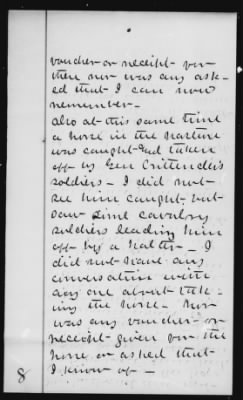 voucher or receipt for
them nor was any ask-
ed that I can now
remember -
also at this same time
a horse in the pasture
was caught and taken
off by Gen Crittendens
soldiers - I did not
see him caught but
saw some cavalry
soldiers leading him
off by a halter - I
did not have any
conversation with
any one about tak-
ing the horse - Nor
was any voucher or
receipt given for the
horse or asked that
I know of -
8